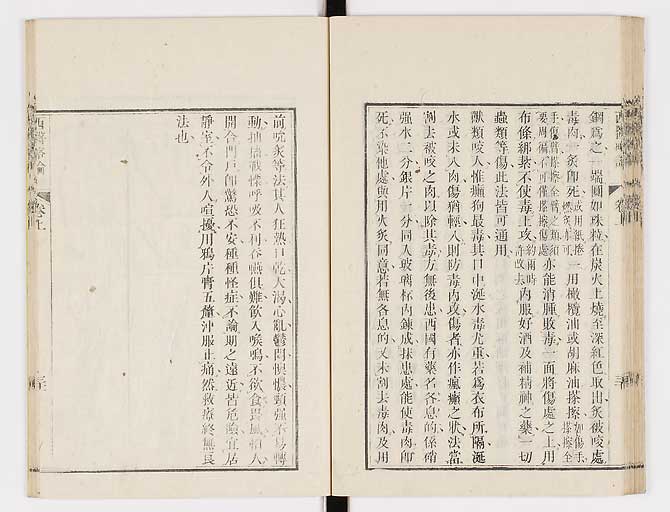 鋼爲之一端圓如珠粒在炭火上燒至深紅色取出炙被咬處
毒肉一炙卽死或用紙捲一用橄欖油或胡麻油搽擦如傷手
亦能消腫散毒一面將傷處之上用
布條綁紮不使毒上攻約兩時許改去內服好酒及補精神之藥一切
蟲類等傷此法皆可通用
獸類咬人惟癲狗最毒其口中涎水毒尤重若爲衣布所隔涎
水或未入肉傷猶輕入則防毒內攻傷者亦作瘋癲之狀法當
割去被咬之肉以除其毒方無後患西國有藥名各息的係硝
強水二分銀片一分同入玻璃杯內鍊成抹患處能使毒肉卽
死不染他處與用火炙同意若無各息的又未割去毒肉及用
前吮炙等法其人狂熱口乾大渴心亂鬱悶懊憹頸強不易轉
動抽搐戰慄呼吸不利吞嚥俱難飲入喉鳴不欲食畏風怕人
開合門戶卽驚恐不安種種怪症不論期之遠近皆危險宜居
靜室不令外人喧擾用鴉片膏五釐沖服止痛然救療終無良
法也